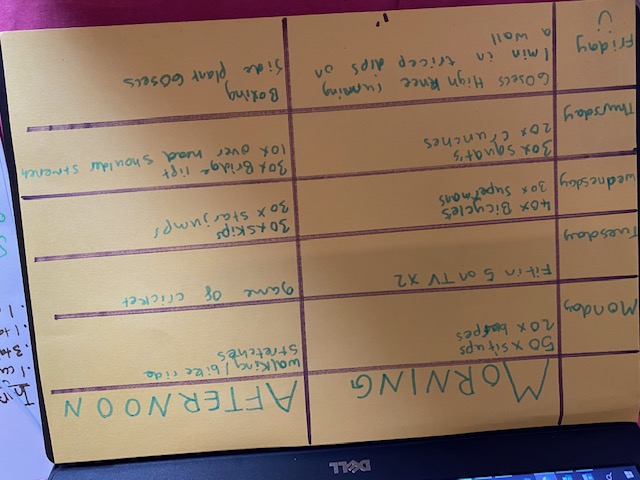 MORNING AFTERNOON
Monday
50 x situps
20x bespes
walking / bike ride
stretches
Tuesday
Fit in 5 on TV x2
game of cricket
Wednesday
40x Bicycles
30x supermans
30x skips
30 x star jumps
Thursday
30x squats
20x crunches
30x Bridge lift
10x over head shoulder strench
Friday
60secs High knee running
1 min in tricep dips on
a wall
Boxing
Side plant 60secs
DELL